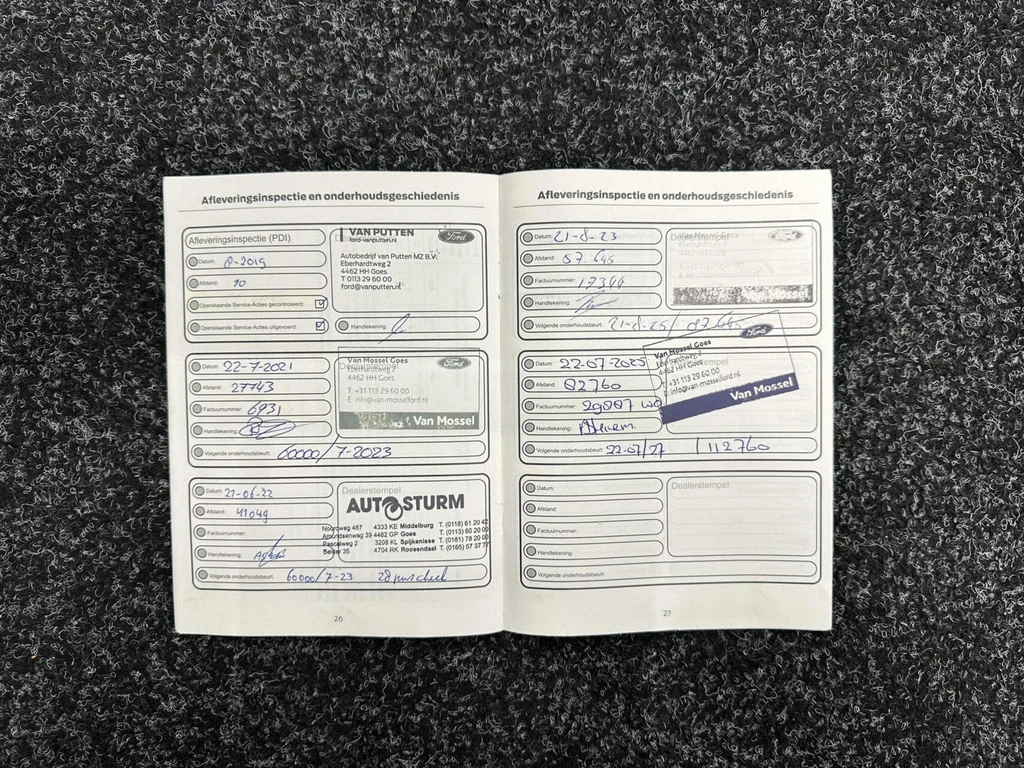 Afleveringsinspectie en onderhoudsgeschiedenis
Afleveringsinspectie (PDI)
Datum: 8-2019
Afstand: 10
Openstaande Service-Acties gecontroleerd:
Openstaande Service-Acties uitgevoerd:
VAN PUTTEN
ford-vanputten.nl
Ford
Autobedrijf van Putten MZ B.V.
Eberhardtweg 2
4462 HH Goes
T 0113 29 60 00
ford@vanputten.nl
Handtekening:
Datum: 22-7-2021
Afstand: 27743
Factuurnummer: 6931
Handtekening:
Dealerstempel
Van Mossel Goes
Ford
Eberhardtweg 2
4462 HH Goes
T. +31 113 29 60 00
E. info@van-mosselford.nl
Van Mossel
Volgende onderhoudsbeurt: 60000/7-2023
Datum: 21-06-22
Afstand: 41049
Factuurnummer:
Handtekening:
Dealerstempel
AUTOSTURM
Noordweg 467 4333 KE Middelburg T. (0118) 61 20 42
4462 GP Goes T. (0113) 60 20 00
3208 KL Spijkenisse T. (0181) 78 20 00
35 4704 RK Roosendaal T. (0165) 57 37 77
Volgende onderhoudsbeurt: 60000/7-23
26
Afleveringsinspectie en onderhoudsgeschiedenis
Datum: 21-8-23
Afstand: 57.645
Factuurnummer: 17344
Handtekening:
Dealerstempel
Van Mossel Goes
Ford
Van Mossel
Volgende onderhoudsbeurt: 21-8-25/ 87.645
Datum: 22-07-2025
Afstand: 82760
Factuurnummer:
Handtekening:
Dealerstempel
Van Mossel Goes
Ford
Eberhardtweg 2
4462 HH Goes
T. +31 113 29 60 00
E. info@van-mosselford.nl
Van Mossel
Volgende onderhoudsbeurt: 22-07/27 / 112760
Datum:
Afstand:
Factuurnummer:
Handtekening:
Dealerstempel
Volgende onderhoudsbeurt:
27